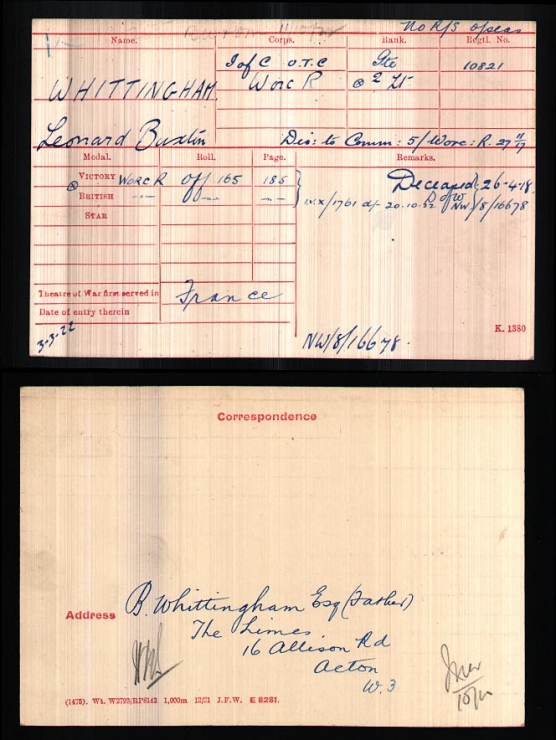 No R/S opeas
Name. Corps. Rank. Regtl. No.
I of C O.T.C Pte 10821
WHITTINGHAM. Worc R @ 2 Lt
Leonard Buxtin Dis: to Comm: 5/Worc: R. 27 11/17
Medal. Roll. Page. Remarks.
VICTORY Worc R Off 165 185 Deceased. 26-4-18.
BRITISH -- -- -- IV.X/1761 d/- 20-10-22 D of W NW/8/16678
STAR
Theatre of War first served in France
Date of entry therein
3-3-22
NW/8/16678.
K. 1380
Correspondence
Address B. Whittingham Esq (Father)
The Limes.
16 Allison Rd
Acton
W.3
(1475). Wt. W2703/RP6142 1,000m 12/21 J.F.W. E 8281.